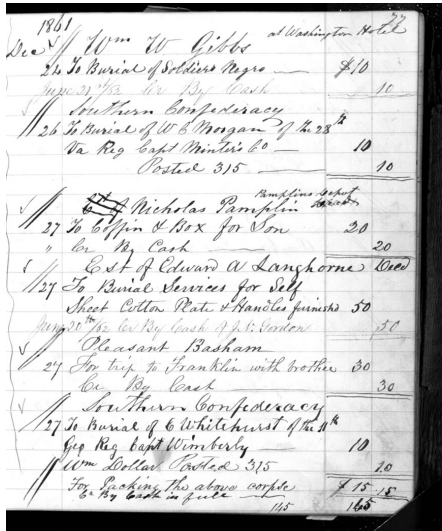 77
1861
Dec // Wm W Gibbs at Washington Hotel
24 To Burial of Soldiers Negro — $10
June 21st /62 Cr By Cash 10
// Southern Confederacy
26 To Burial of W E Morgan of the 28th
Va Reg Capt Minters Co — 10
Posted 315 — 10
// Nicholas Pamplin Pamplins Depot
27 To Coffin & Box for Son 20
" Cr By Cash — 20
// Est of Edward A Langhorne Decd
27 To Burial Services for Self
Sheet Cotton Plate & Handles furnishd 50
June 20th /62 Cr By Cash of J. N. Gordon 50
// Pleasant Basham
27 For trip to Franklin with brother 30
Cr By Cash 30
// Southern Confederacy
27 To Burial of C Whitehurst of the 11th
Geo Reg Capt Wimberly — 10
// Wm Dollar Posted 315 10
For Packing the above corpse $15
Cr By Cash in full — 15
145 145